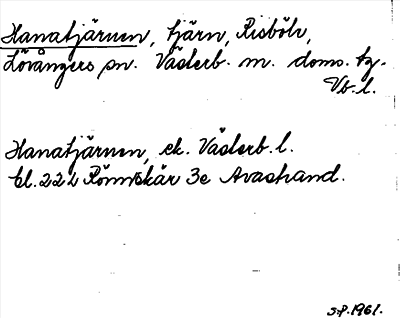 Hanatjärnen, tjärn, Risböle,
Lövångers sn. Västerb. m. doms. tg.
Vb. l.
Hanatjärnen, ek. Västerb. l.
bl. 222 Rönnskär 3e Avastrand.
S.P. 1961.